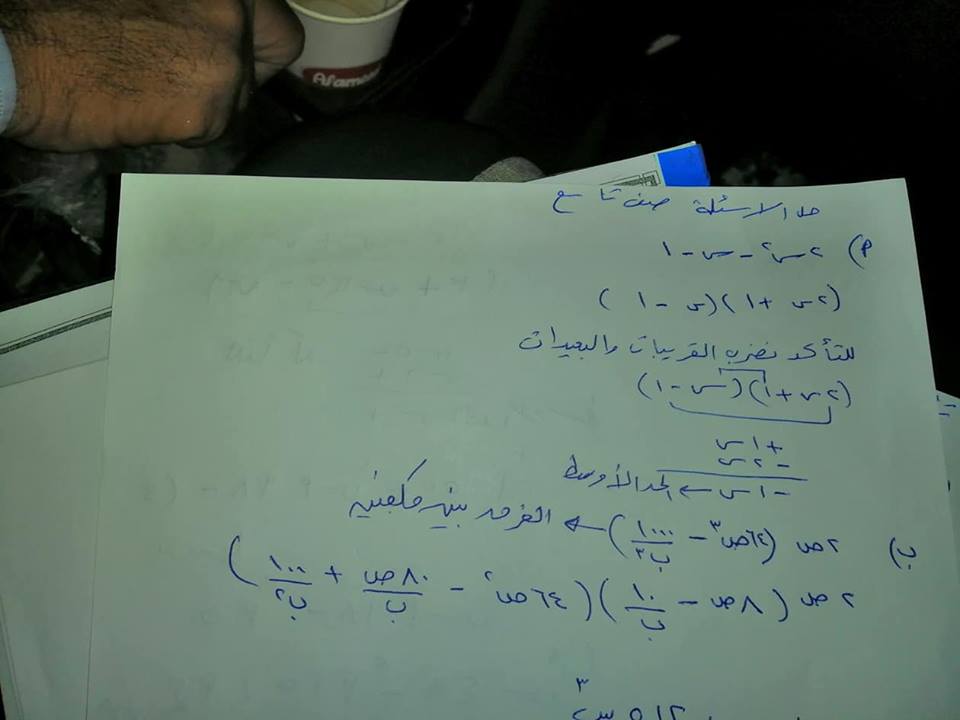 Afamee
حل الاسئلة صف تاسع
أ) ٢س٢ - س - ١
(٢س + ١)(س - ١)
للتأكد نضرب القريبات والبعيدات
(٢س + ١)(س - ١)
+ ١س
- ٢س
- ١س ← الحد الأوسط
ب) ٢ص (٦٤ص٣ - ١٠٠٠/ب٣) ← الفرق بين مكعبين
٢ص (٨ص - ١٠/ب)(٦٤ص٢ - ٨٠ص/ب + ١٠٠/ب٢)